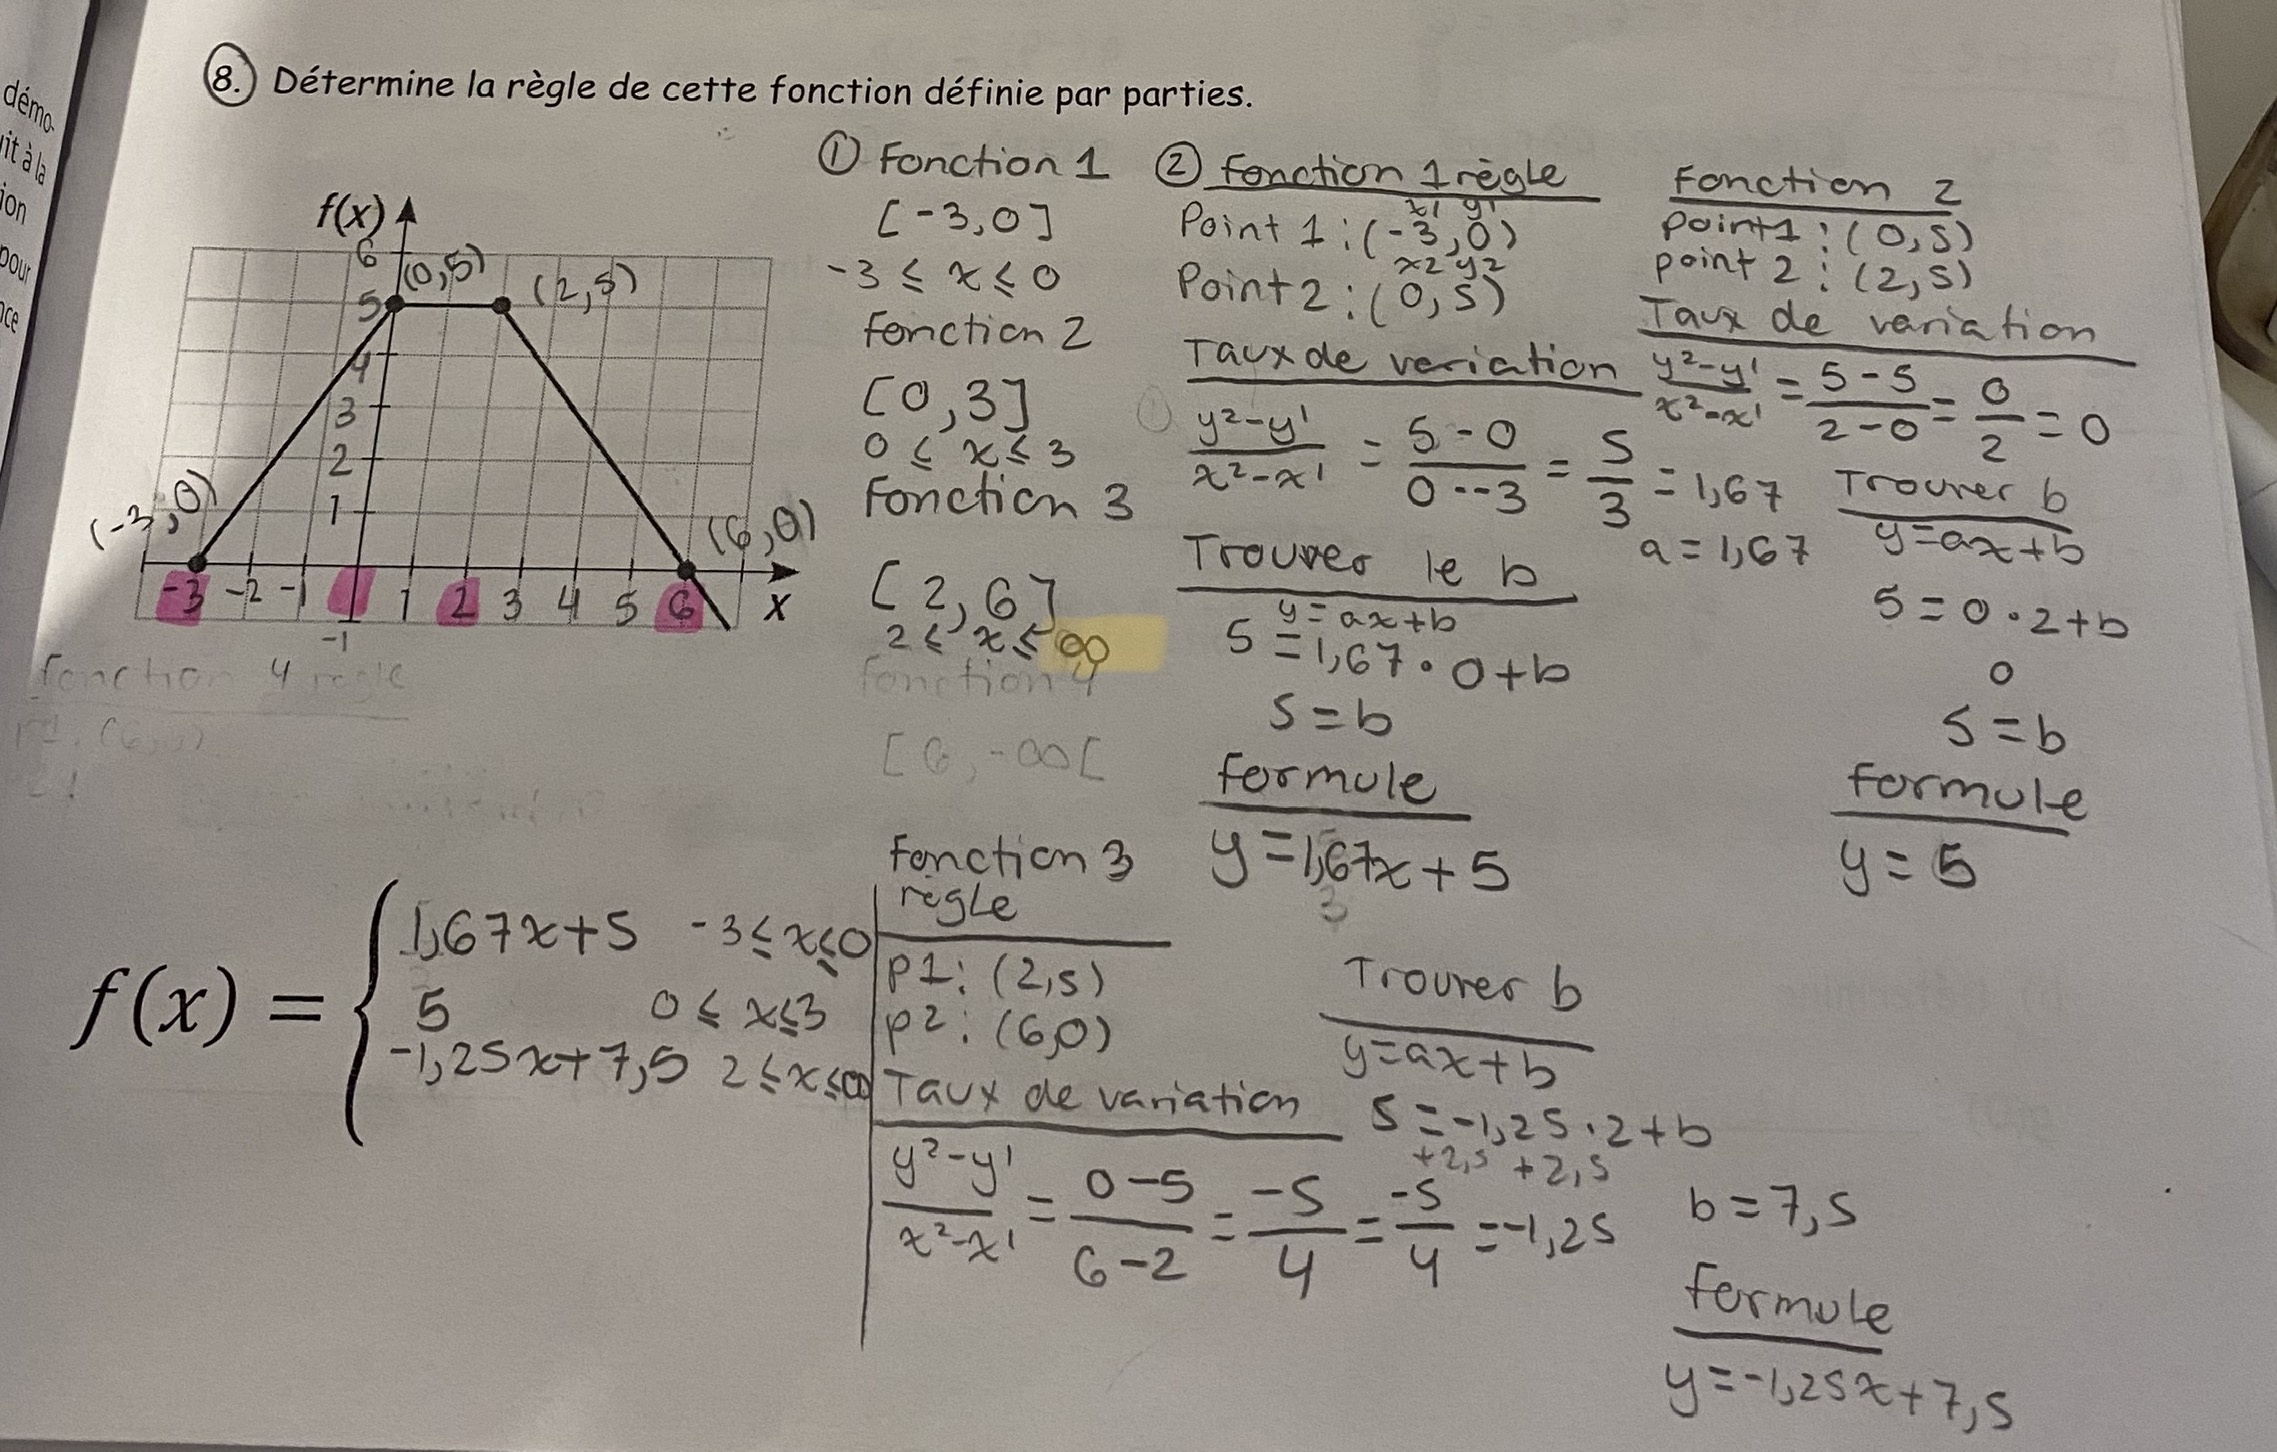 démo-
uit à la
ion
pour
nce
8. Détermine la règle de cette fonction définie par parties.
f(x)
6
5
4
3
2
1
-3 -2 -1 1 2 3 4 5 6 x
-1
(0,5)
(2,5)
(-3,0)
(6,0)
fonction 4 règle
① Fonction 1
[-3,0]
-3 ≤ x ≤ 0
Fonction 2
[0,3]
0 ≤ x ≤ 3
Fonction 3
[2,6]
2 ≤ x ≤ ∞
Fonction 4
[6,-∞[
② Fonction 1 règle
x1 y1
Point 1 : (-3,0)
x2 y2
Point 2 : (0,5)
Taux de variation
y2-y1/x2-x1 = 5-0/0--3 = 5/3 = 1,67
a = 1,67
Trouver le b
y=ax+b
5 = 1,67·0+b
5=b
Formule
y=1,67x+5
3
Fonction 2
point 1 : (0,5)
point 2 : (2,5)
Taux de variation
y2-y1/x2-x1 = 5-5/2-0 = 0/2 = 0
Trouver b
y=ax+b
5=0·2+b
0
5=b
Formule
y=5
f(x) = {
1,67x+5 -3≤x≤0
5 0≤x≤3
-1,25x+7,5 2≤x≤∞
Fonction 3
règle
P1: (2,5)
P2: (6,0)
Taux de variation
y2-y1/x2-x1 = 0-5/6-2 = -5/4 = -5/4 = -1,25
Trouver b
y=ax+b
5=-1,25·2+b
+2,5 +2,5
b=7,5
Formule
y=-1,25x+7,5